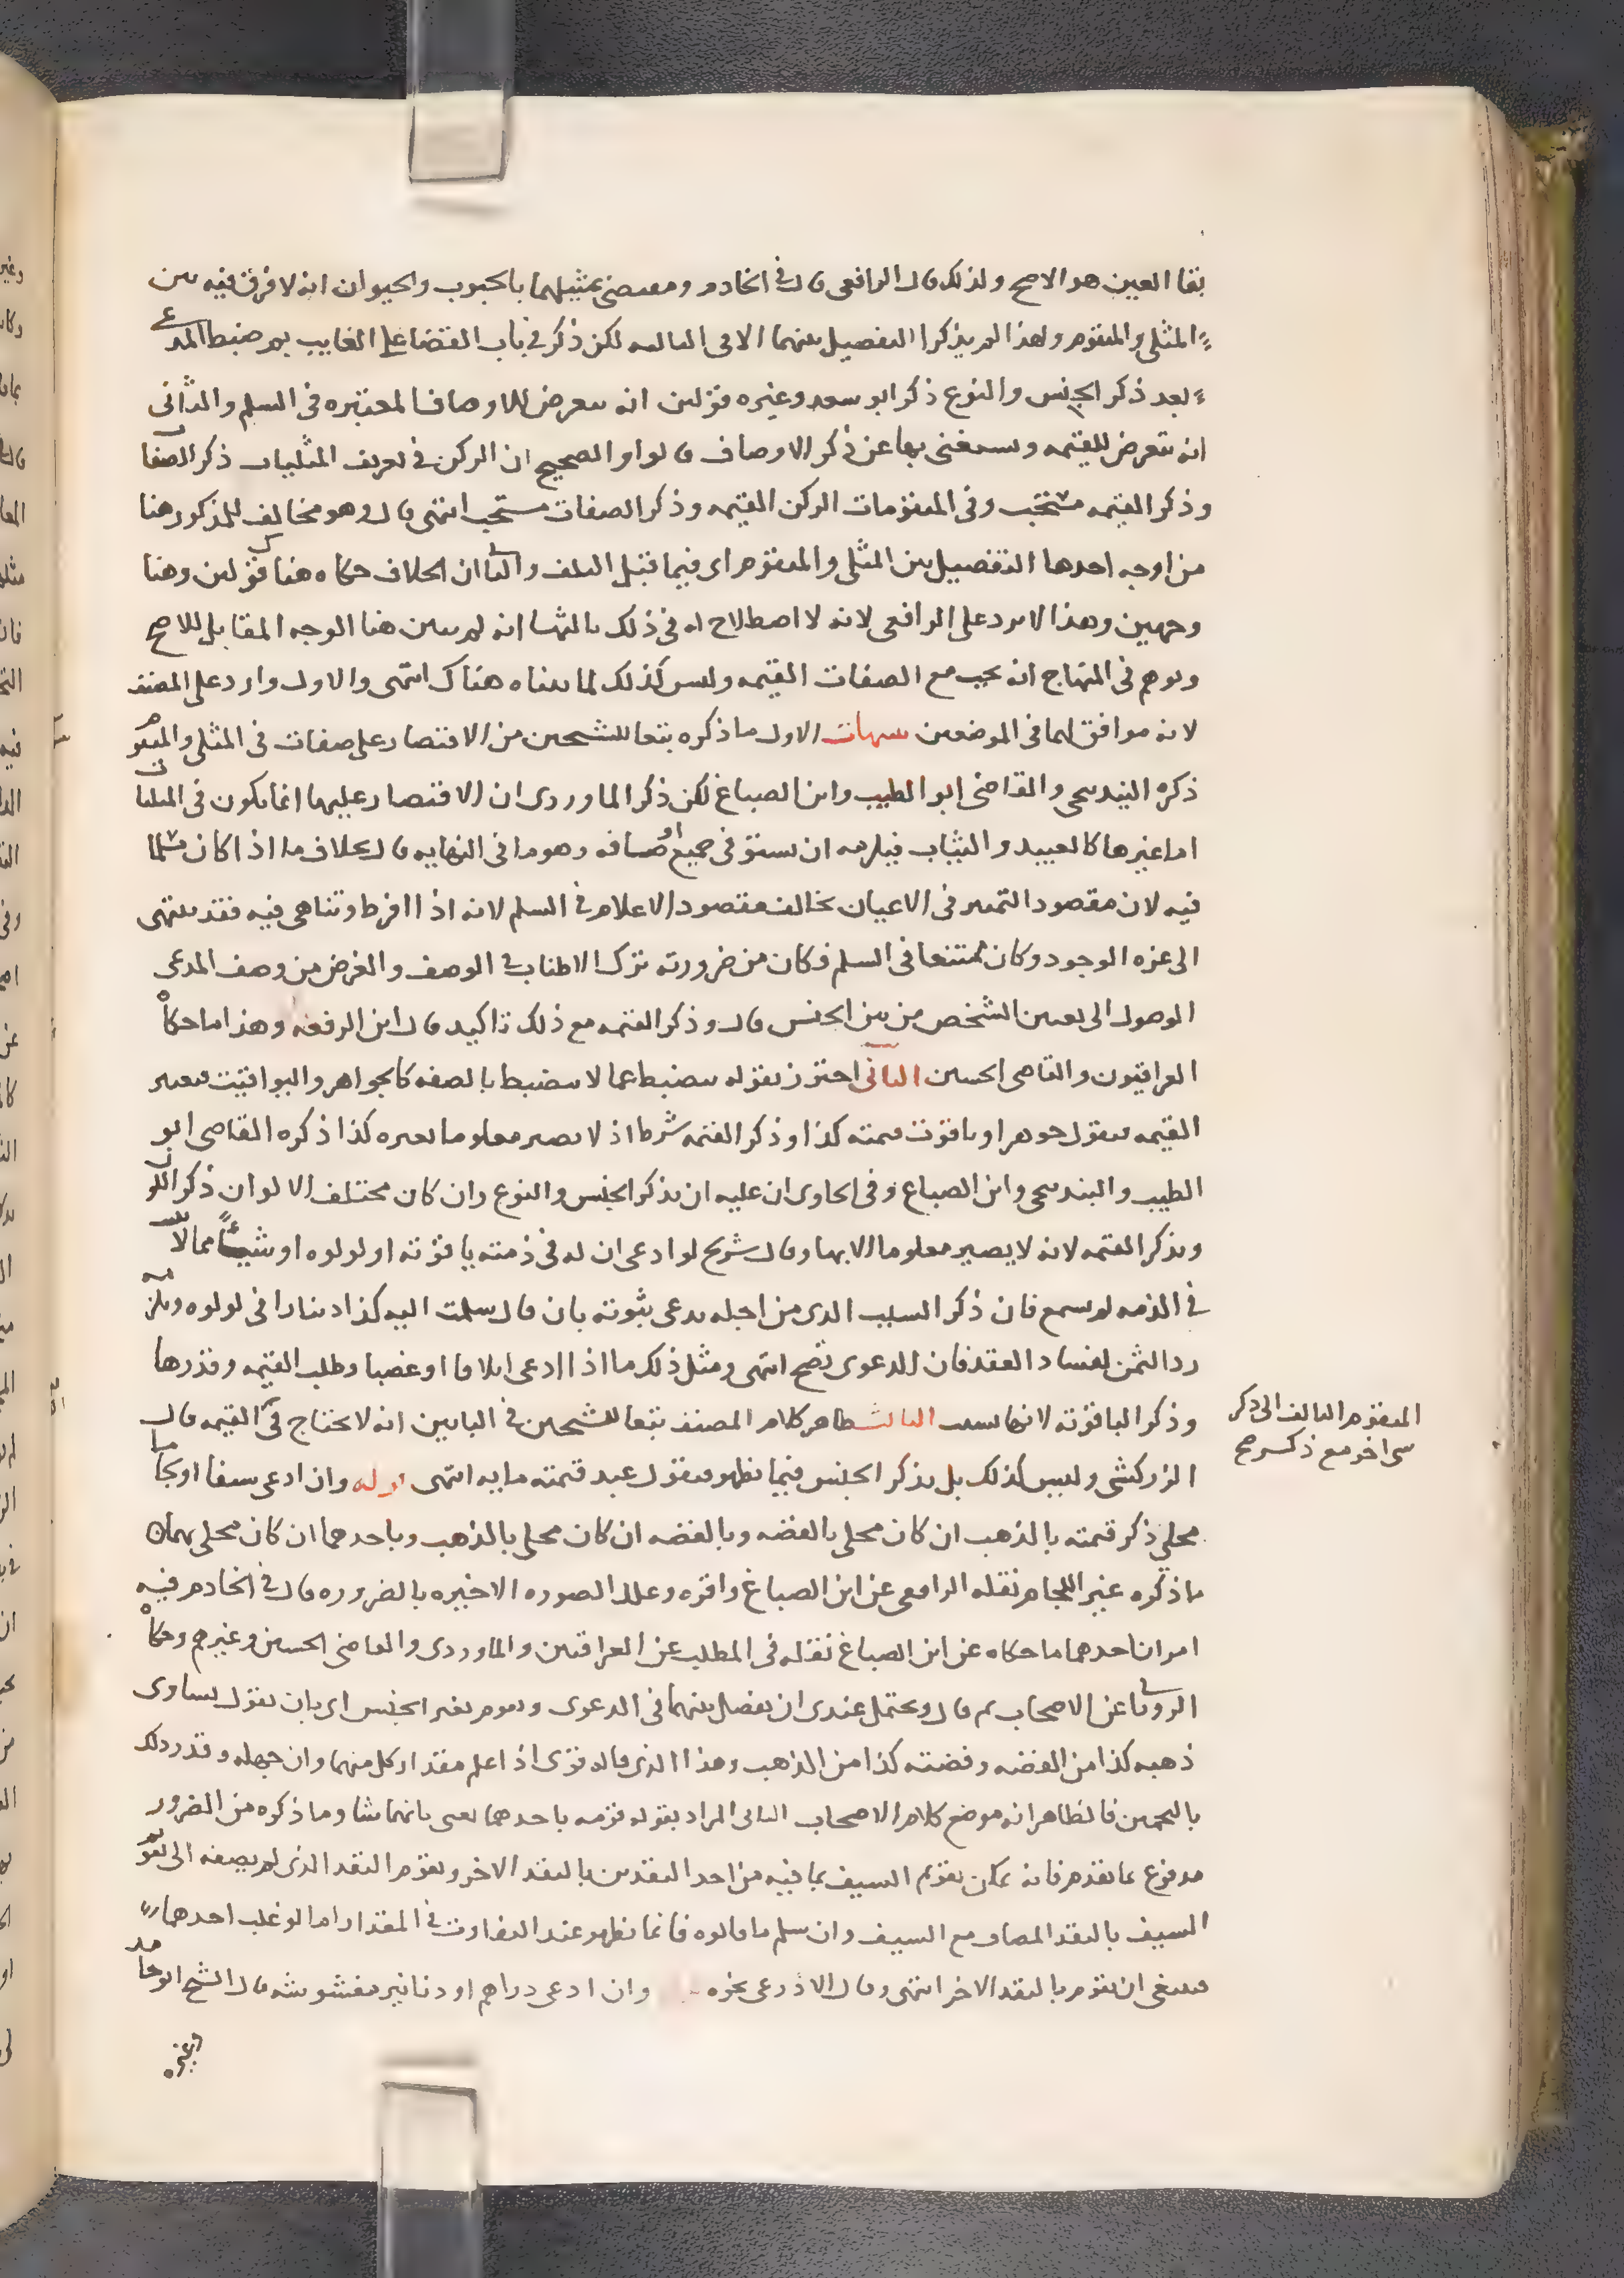 بقا العين هو الاصح ولذلك قال الرافعى قال فى الخادم ومقتضى تمثيلهما بالحبوب والحيوان انه لا فرق فيه بين
المثلى والمتقوم ولهذا لم يذكرا التفصيل بينهما الا فى التالف لكن ذكر فى باب القضا على الغايب بم ضبط المدعى
بعد ذكر الجنس والنوع ذكر ابو سعد وغيره قولين انه يتعرض للاوصاف المعتبره فى السلم والثانى
انه يتعرض للقيمه ويستغنى بها عن ذكر الاوصاف قالوا والصحيح ان الركن فى تعريف المثليات ذكر الصفات
وذكر القيمه مستحب وفى المتقومات الركن القيمه وذكر الصفات مستحب انتهى قال وهو مخالف للمذكور هنا
من اوجه احدها التفصيل بين المثلى والمتقوم اى فيما قبل التلف والثانى ان الخلاف حكاه هناك قولين وهنا
وجهين وهذا لا يرد على الرافعى لانه لا اصطلاح له فى ذلك ثالثها انه لم يبين هنا الوجه المقابل للاصح
ويوهم فى المنهاج انه يجب مع الصفات القيمه وليس كذلك لما بيناه هناك انتهى والاول وارد على المصنف
لانه موافق لهما فى الموضعين تنبيهات الاول ما ذكره تبعا للشيخين من الاقتصار على صفات فى المثلى والمتقوم
ذكره البندنيجى والقاضى ابو الطيب وابن الصباغ لكن ذكر الماوردى ان الاقتصار عليها انما يكون فى المثليات
اما غيرها كالعبيد والثياب فيلزمه ان يستوفى جميع اوصافه وهو ما فى النهايه قال بخلاف ما اذا كان مسلما
فيه لان مقصود التمييز فى الاعيان يخالف مقصود الاعلام فى السلم لانه اذا افرط وتناهى فيه فقد ينتهى
الى عزه الوجود وكان ممتنعا فى السلم فكان من ضرورته ترك الاطناب فى الوصف والغرض من وصف المدعى
الوصول الى تعيين الشخص من بين الجنس قال وذكر القيمه مع ذلك تاكيد قال ابن الرفعه وهذا ما حكاه
العراقيون والقاضى الحسين الثانى احترز بقوله ينضبط عما لا ينضبط بالصفه كالجواهر واليواقيت فيعتبر
القيمه فيقول جوهر او ياقوت قيمته كذا وذكر القيمه شرط اذ لا يصير معلوما بغيره كذا ذكره القاضى ابو
الطيب والبندنيجى وابن الصباغ وفى الحاوى ان عليه ان يذكر الجنس والنوع وان كان مختلف الالوان ذكر اللون
ويذكر القيمه لانه لا يصير معلوما الا بها وقال شريح لو ادعى ان له فى ذمته ياقوته او لولوه او شيئا مما لا يثبت
فى الذمه لم يسمع فان ذكر السبب الذى من اجله يدعى ثبوته بان قال سلمت اليه كذا دينارا فى لولوه ويلزمه
رد الثمن لفساد العقد فان الدعوى تصح انتهى ومثل ذلك ما اذا ادعى اتلافا او غصبا وطلب القيمه وقدرها
وذكر الياقوته لانها سبب الثالث ظاهر كلام المصنف تبعا للشيخين فى البابين انه لا يحتاج فى القيمه قال
المتقوم التالف الى ذكر
شى اخر مع ذكر صح
الزركشى وليس كذلك بل يذكر الجنس فيما يظهر فيقول عبد قيمته مايه انتهى قوله وان ادعى سيفا او لجاما
محلى ذكر قيمته بالذهب ان كان محلى بالفضه وبالفضه ان كان محلى بالذهب وباحدهما ان كان محلى بهما
ما ذكره غير اللجام نقله الرافعى عن ابن الصباغ واقره وعلل الصوره الاخيره بالضروره قال فى الخادم فيه
امران احدهما ما حكاه عن ابن الصباغ نقله فى المطلب عن العراقيين والماوردى والقاضى الحسين وغيرهم وحكاه
الرويانى عن الاصحاب ثم قال ويحتمل عندى ان يفصل بينهما فى الدعوى ويقوم بغير الجنس اى بان يقول يساوى
ذهبه كذا من الفضه وفضته كذا من الذهب وهذا الذى قاله قوى اذا علم مقدار كل منهما وان جهله وقدر ذلك
بالتخمين فالظاهر انه موضع كلام الاصحاب الثانى المراد بقوله قومه باحدهما يعنى بايهما شا وما ذكره من الضروره
مدفوع بما تقدم فانه يمكن تقويم السيف بما فيه من احد النقدين بالنقد الاخر ويقوم النقد الذى لم يضفه الى تقويم
السيف بالنقد المضاف مع السيف وان سلم ما قالوه فانما يظهر عند التفاوت فى المقدار اما لو غلب احدهما
فينبغى ان يقوم بالنقد الاخر انتهى وقال الاذرعى نحوه وان ادعى دراهم او دنانير مغشوشه قال الشيخ ابو حامد
وغيره